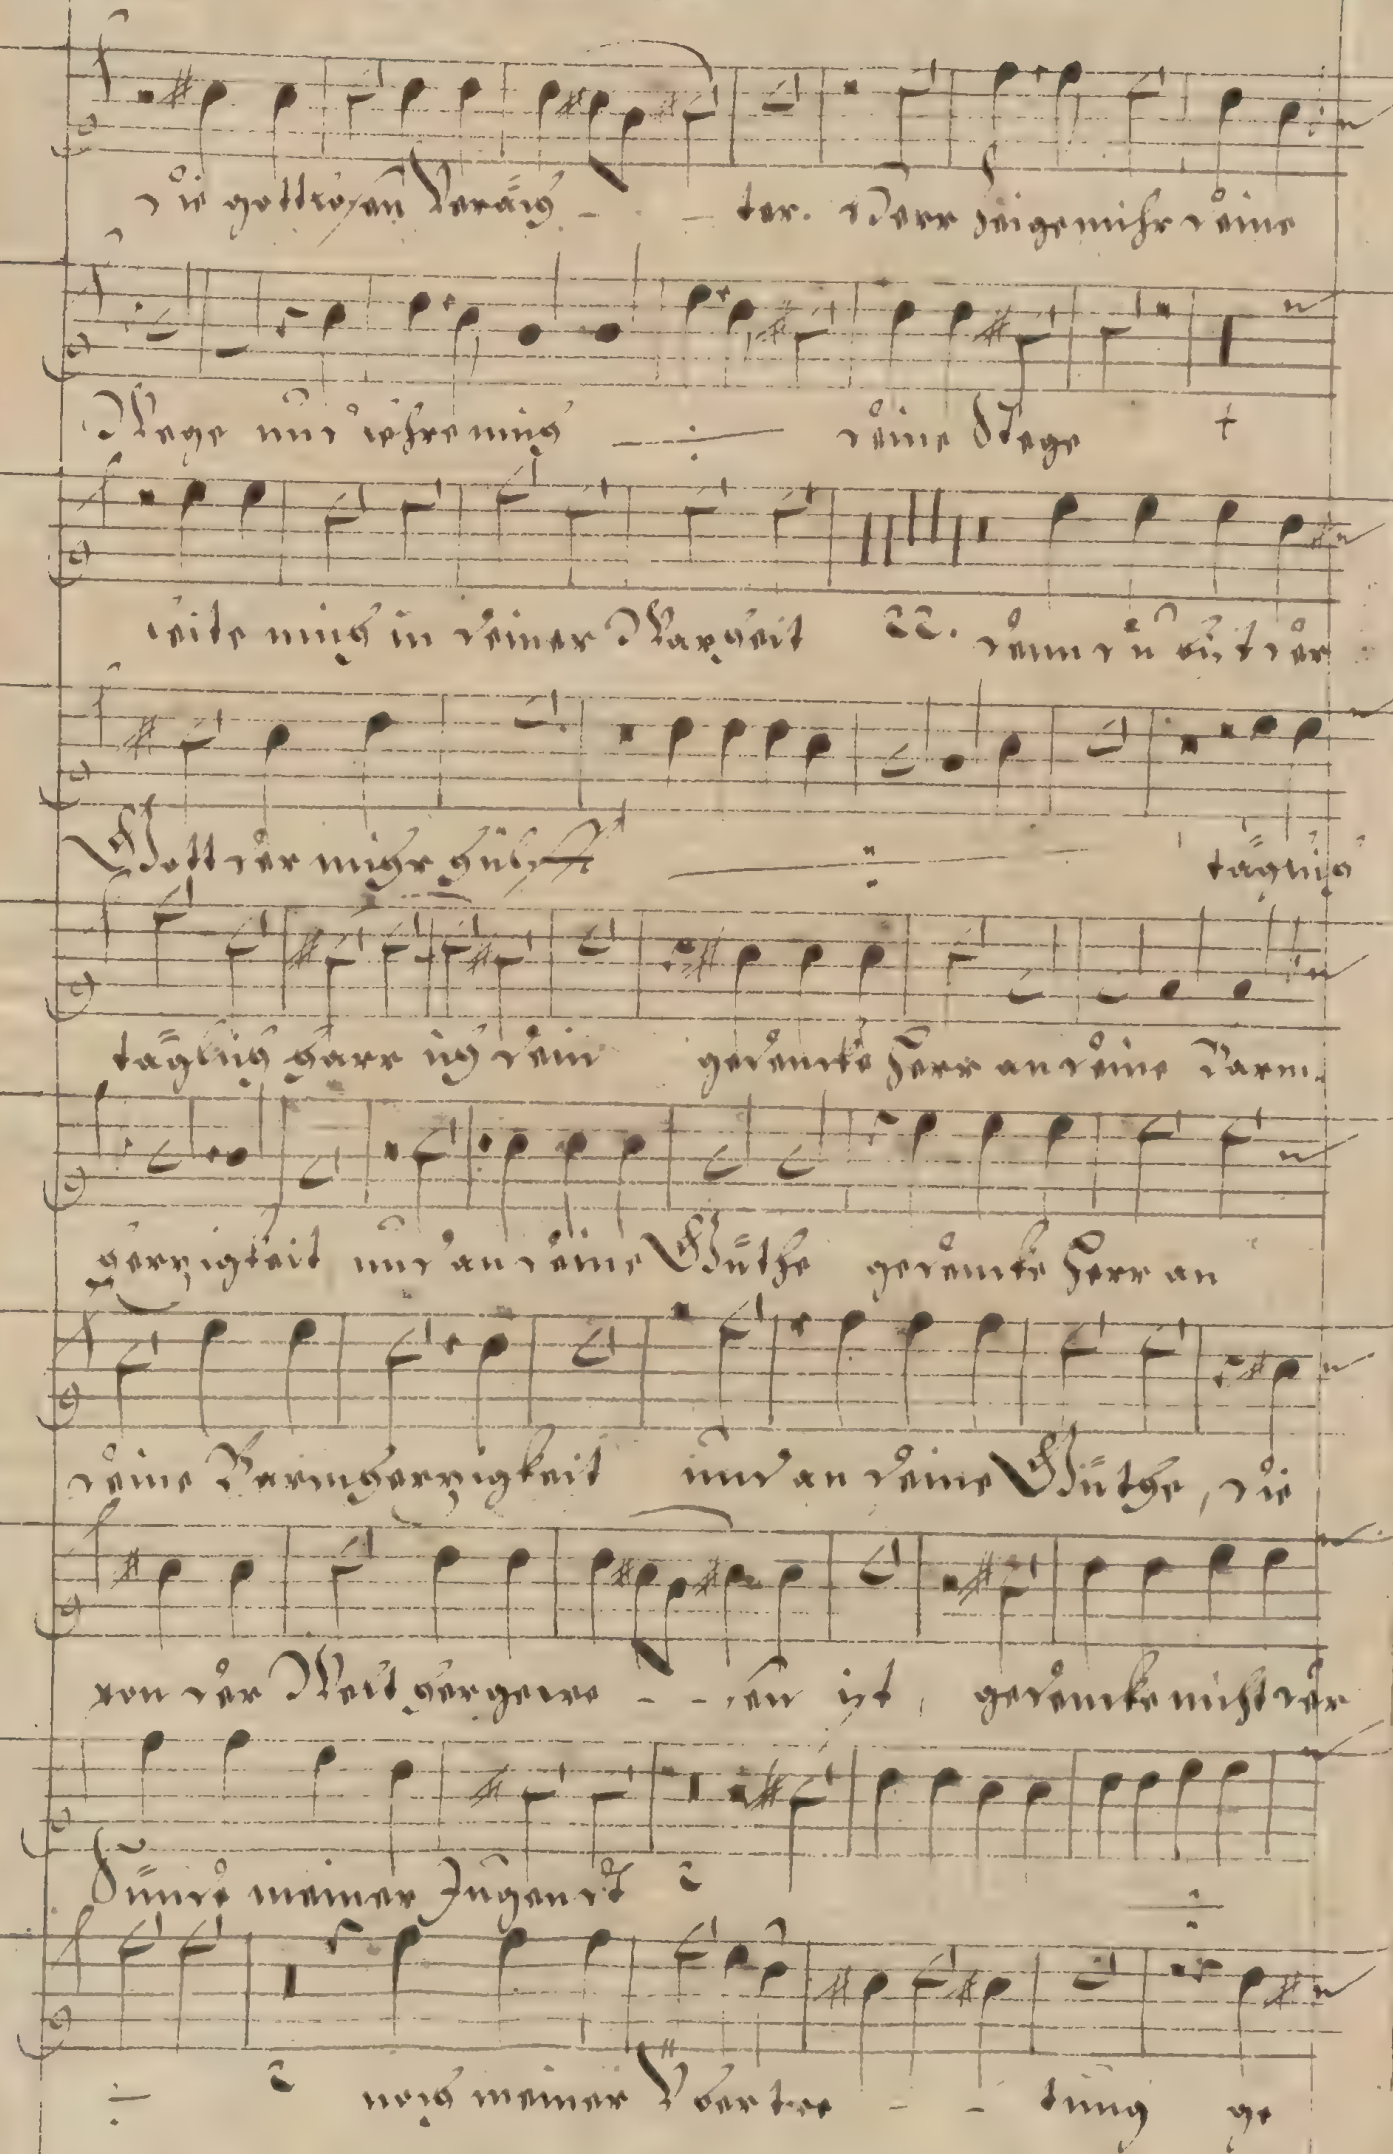 die gottlosen Veräch - - ter. Herr zeige mihr deine
Wege und lehre mich deine Stege
leite mich in deiner Warheit 22. denn du bist der
Gott der mihr hülfft täglich
täglich harr ich dein gedencke Herr an deine Barm-
hertzigkeit und an deine Güthe gedencke Herr an
deine Barmhertzigkeit und an deine Güthe, die
von der Welt her gewe - - sen ist, gedencke nicht der
Sünde meiner Jugendt 2
2 noch meiner Übertre - - tung ge